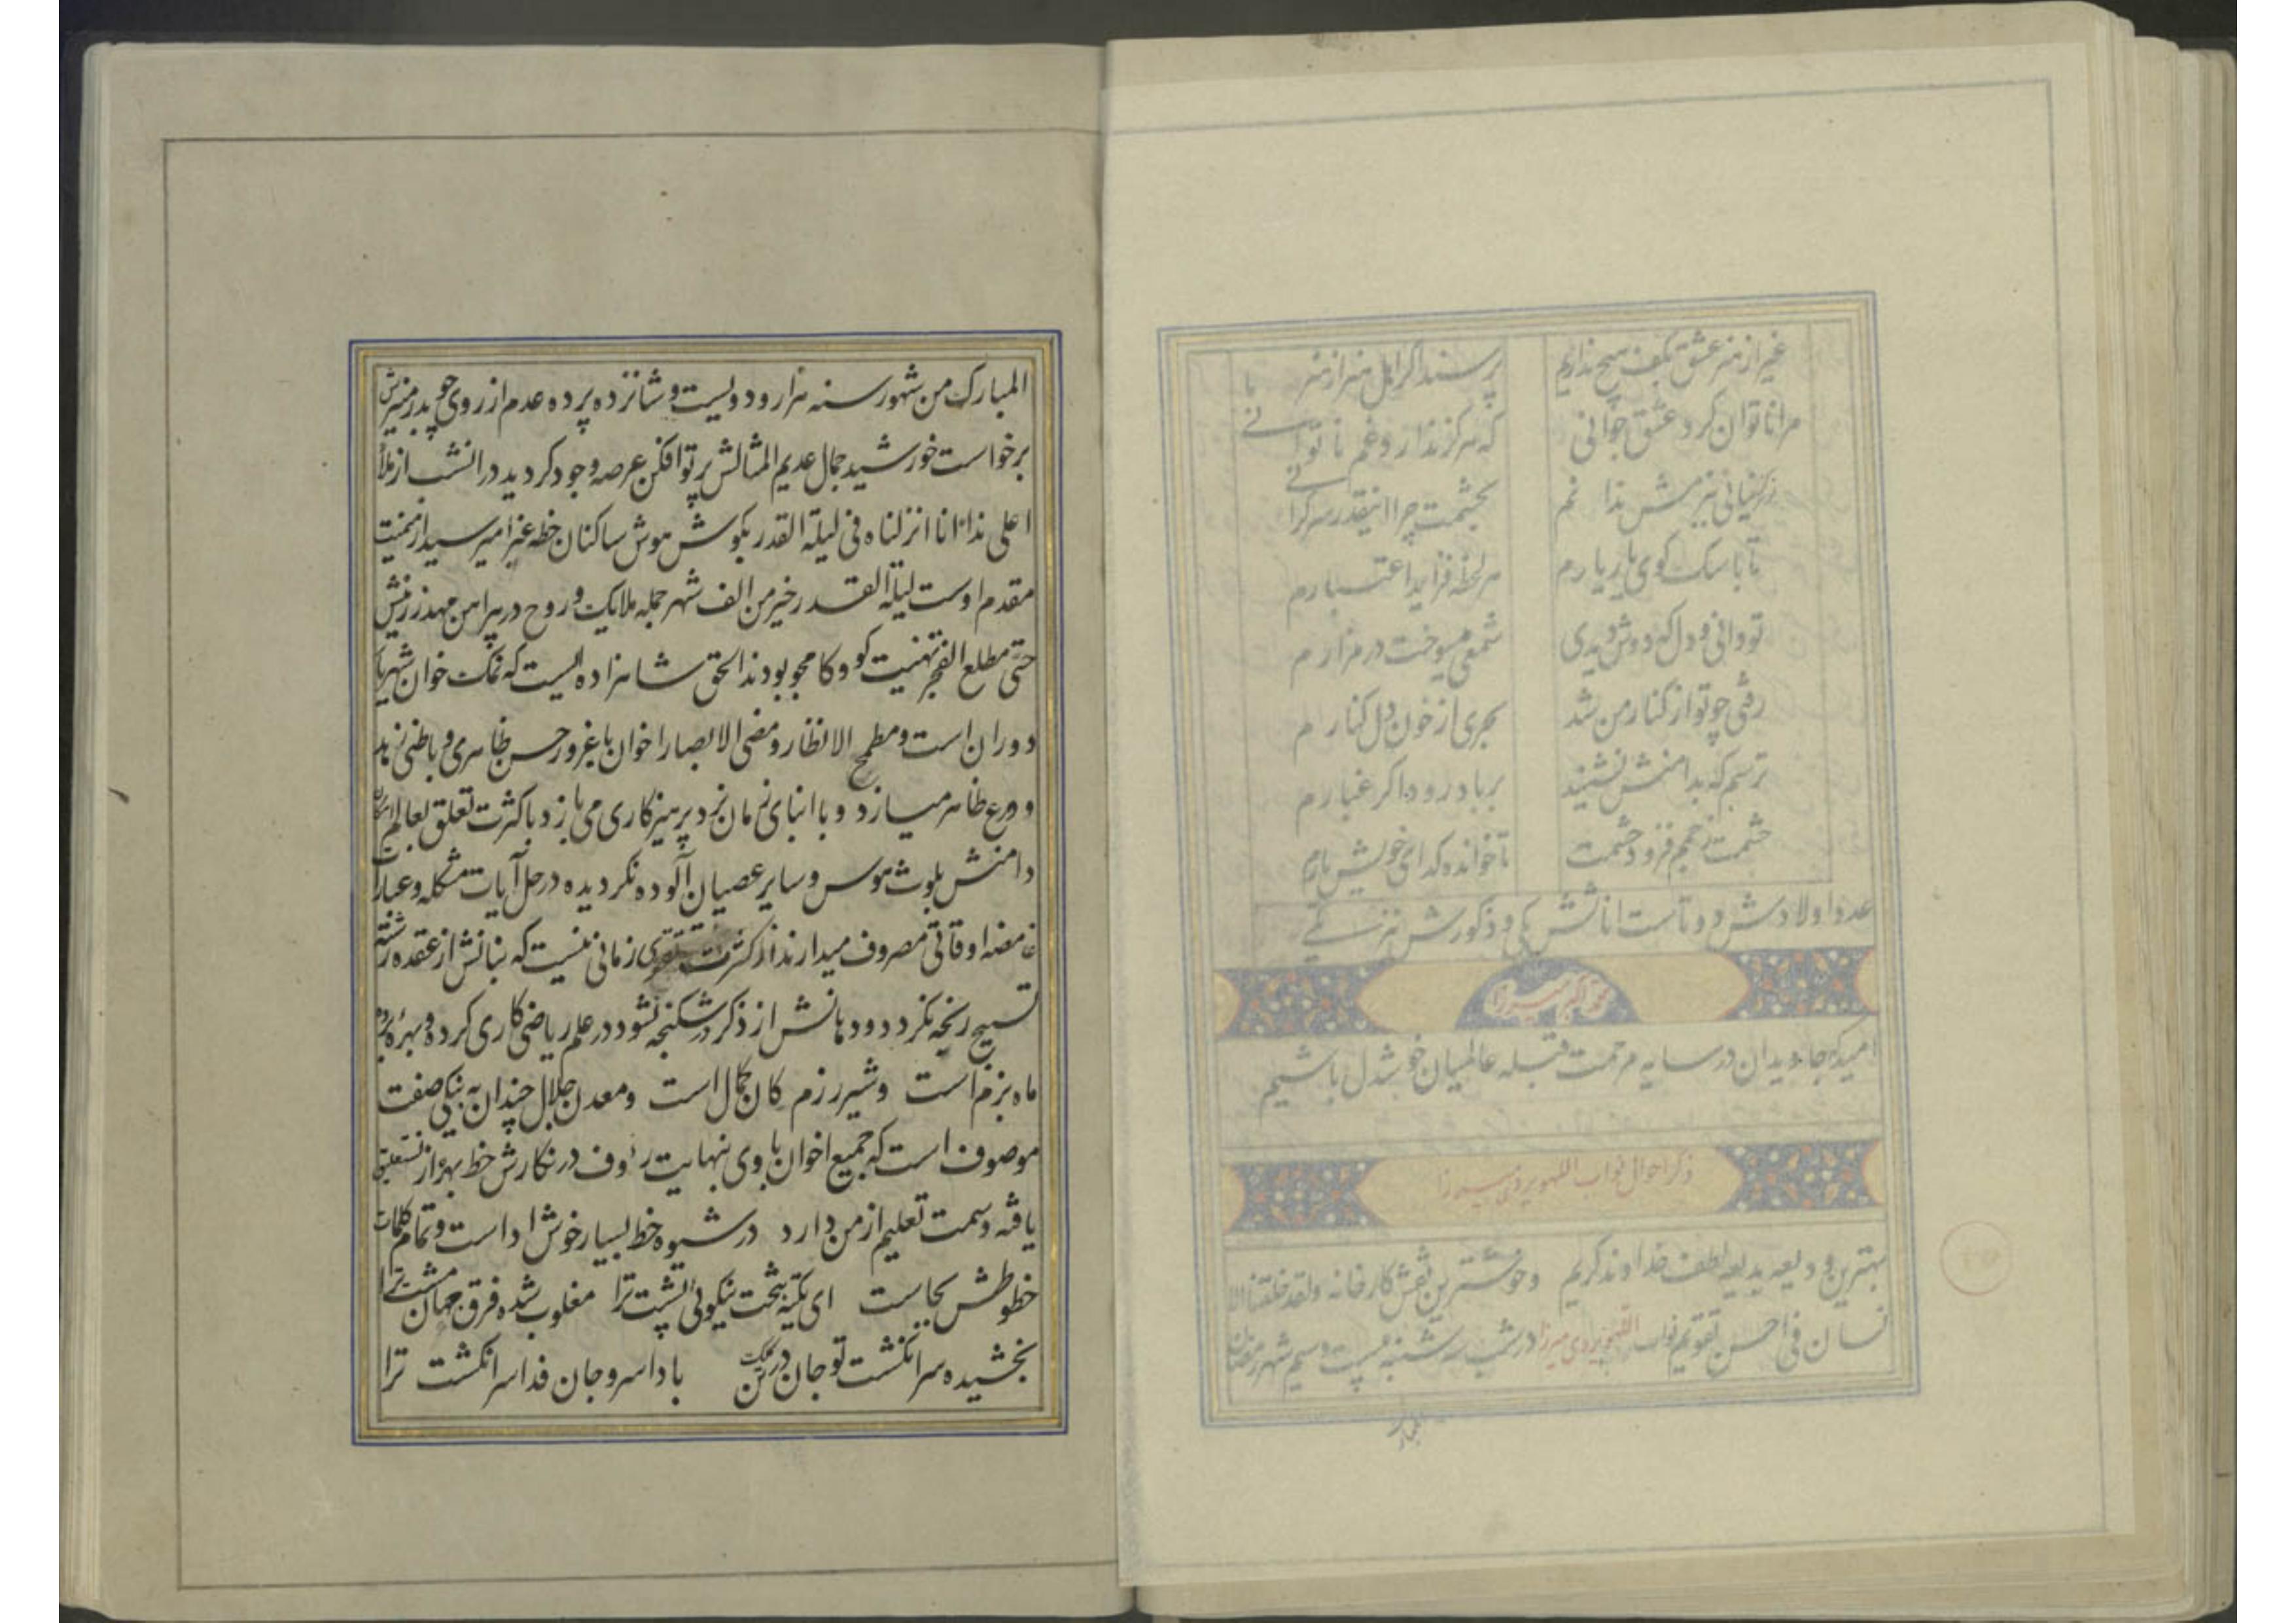 غیر از هنر عشق بکف هیچ نداریم پرسند اگر اهل هنر از هنر ما
مرا ناتوان کرد عشق جوانی که هرگز ندارد غم ناتوانی
بچشمت چرا اینقدر سرگرانی
تا با سگ کوی یار یارم هر لحظه فزاید اعتبارم
تو دانی و دل که دوش بی شمعی میسوخت در مزارم
رفتی چو تو از کنار من شد بحری از خون دل کنارم
ترسم که بدامنش نشیند بر باد رود اگر غبارم
حشمت فزود حشمت تا خوانده گدای خویش یارم
عدد اولادش دو تاست اناثش یکی و ذکورش نیز یکی
محمد اکبر میرزا
امید که جاویدان در سایه مرحمت قبله عالمیان خوشدل باشیم
ذکر احوال نواب اللهویردی میرزا
بهترین ودیعه بدیعه لطف خداوند کریم و خوشترین نقش کارخانه ولقد خلقنا الا
نسان فی احسن تقویم نواب اللهویردی میرزا در شب سه شنبه بیست و سیم شهر رمضان
المبارک
المبارک من شهور سنه هزار و دویست و شانزده پرده عدم از روی چو بدر منیرش
برخواست خورشید جمال عدیم المثالش پرتو افکن عرصه وجود گردید در انشب از ملأ
اعلی ندا انا انزلناه فی لیلة القدر بگوش هوش ساکنان خطه غبرا میرسید از میمنت
مقدم اوست لیلة القدر خیر من الف شهر جمله ملایک و روح در پیرامن مهد زرینش
حتی مطلع الفجر تهنیت کو و کامجو بودند الحق شاهزاده ایست که نمک خوان شهریار
دوران است و مطمح الانظار و مضی الابصار اخوان با غرور حسن ظاهری و باطنی زهد
و ورع ظاهر میسازد و با ابنای زمان نرد پرهیزکاری می بازد با کثرت تعلق بعالم امکان
دامنش بلوث هوس و سایر عصیان آلوده نگردیده در حل آیات مشکله و عبارات
غامضه اوقاتی مصروف میدارند از کثرت تقوی زمانی نیست که بنانش از عقده رشته
تسبیح رنجه نگردد و دهانش از ذکر در شکنجه نشود در علم ریاضی کاری کرده و بهره برده
ماه بزم است و شیر رزم کان کمال است و معدن جلال چندان به نیکی صفت
موصوف است که جمیع اخوان با وی بنهایت رؤف در نگارش خط بهره از نستعلیق
یافته و سمت تعلیم از من دارد در شیوه خط بسیار خوش ادا است و تمام کلمات
خطوطش بجاست ای تکیه ببخت نیکوئی پشت ترا مغلوب شده فرق جهان مشت ترا
بخشیده سر انگشت تو جان در تن ملک بادا سر و جان فدا سر انگشت ترا